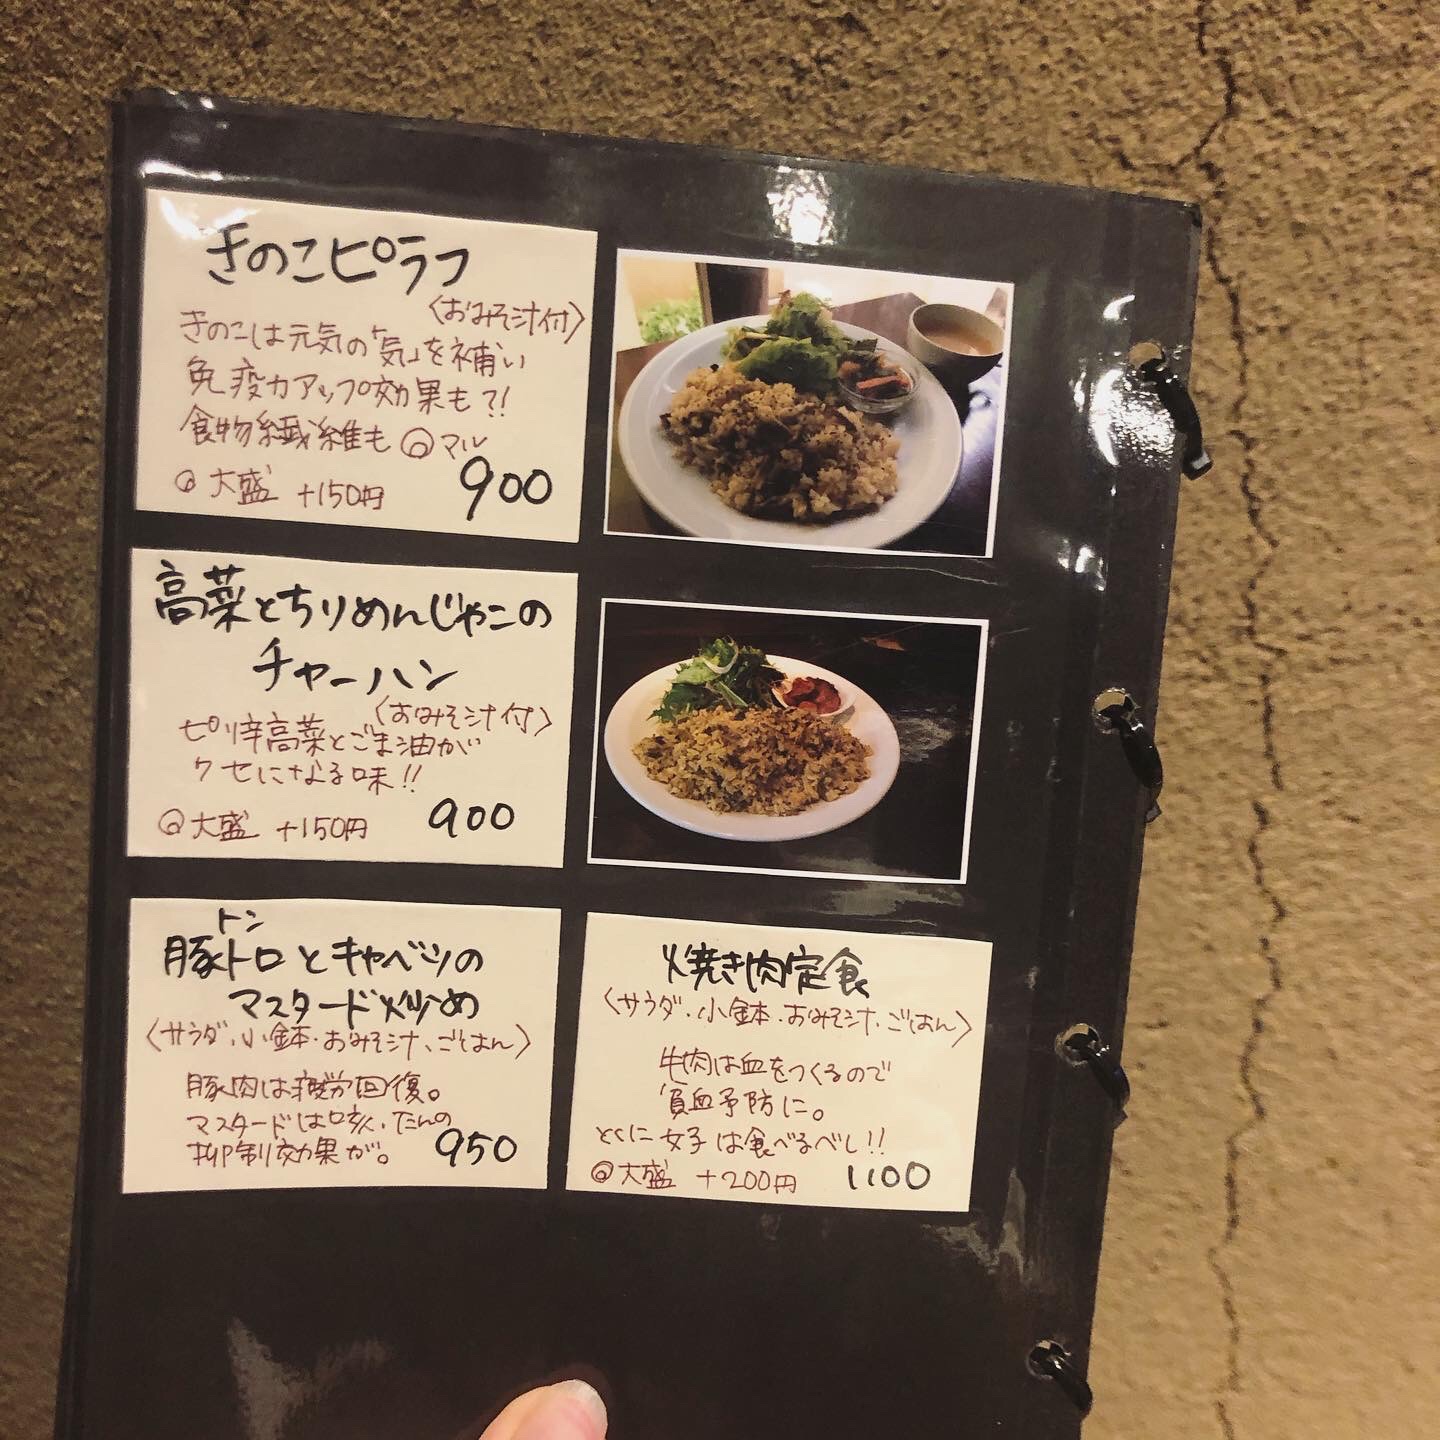 きのこピラフ
〈おみそ汁付〉
きのこは元気の「気」を補い
免疫力アップ効果も?!
食物繊維も◎マル
◎大盛 +150円
900
高菜とちりめんじゃこの
チャーハン
〈おみそ汁付〉
ピリ辛高菜とごま油が
クセになる味!!
◎大盛 +150円
900
トン
豚トロとキャベツの
マスタード炒め
〈サラダ、小鉢・おみそ汁、ごはん〉
豚肉は疲労回復。
マスタードは咳、たんの
抑制効果が。
950
焼き肉定食
〈サラダ、小鉢・おみそ汁、ごはん〉
牛肉は血をつくるので
貧血予防に。
とくに女子は食べるべし!!
◎大盛 +200円
1100